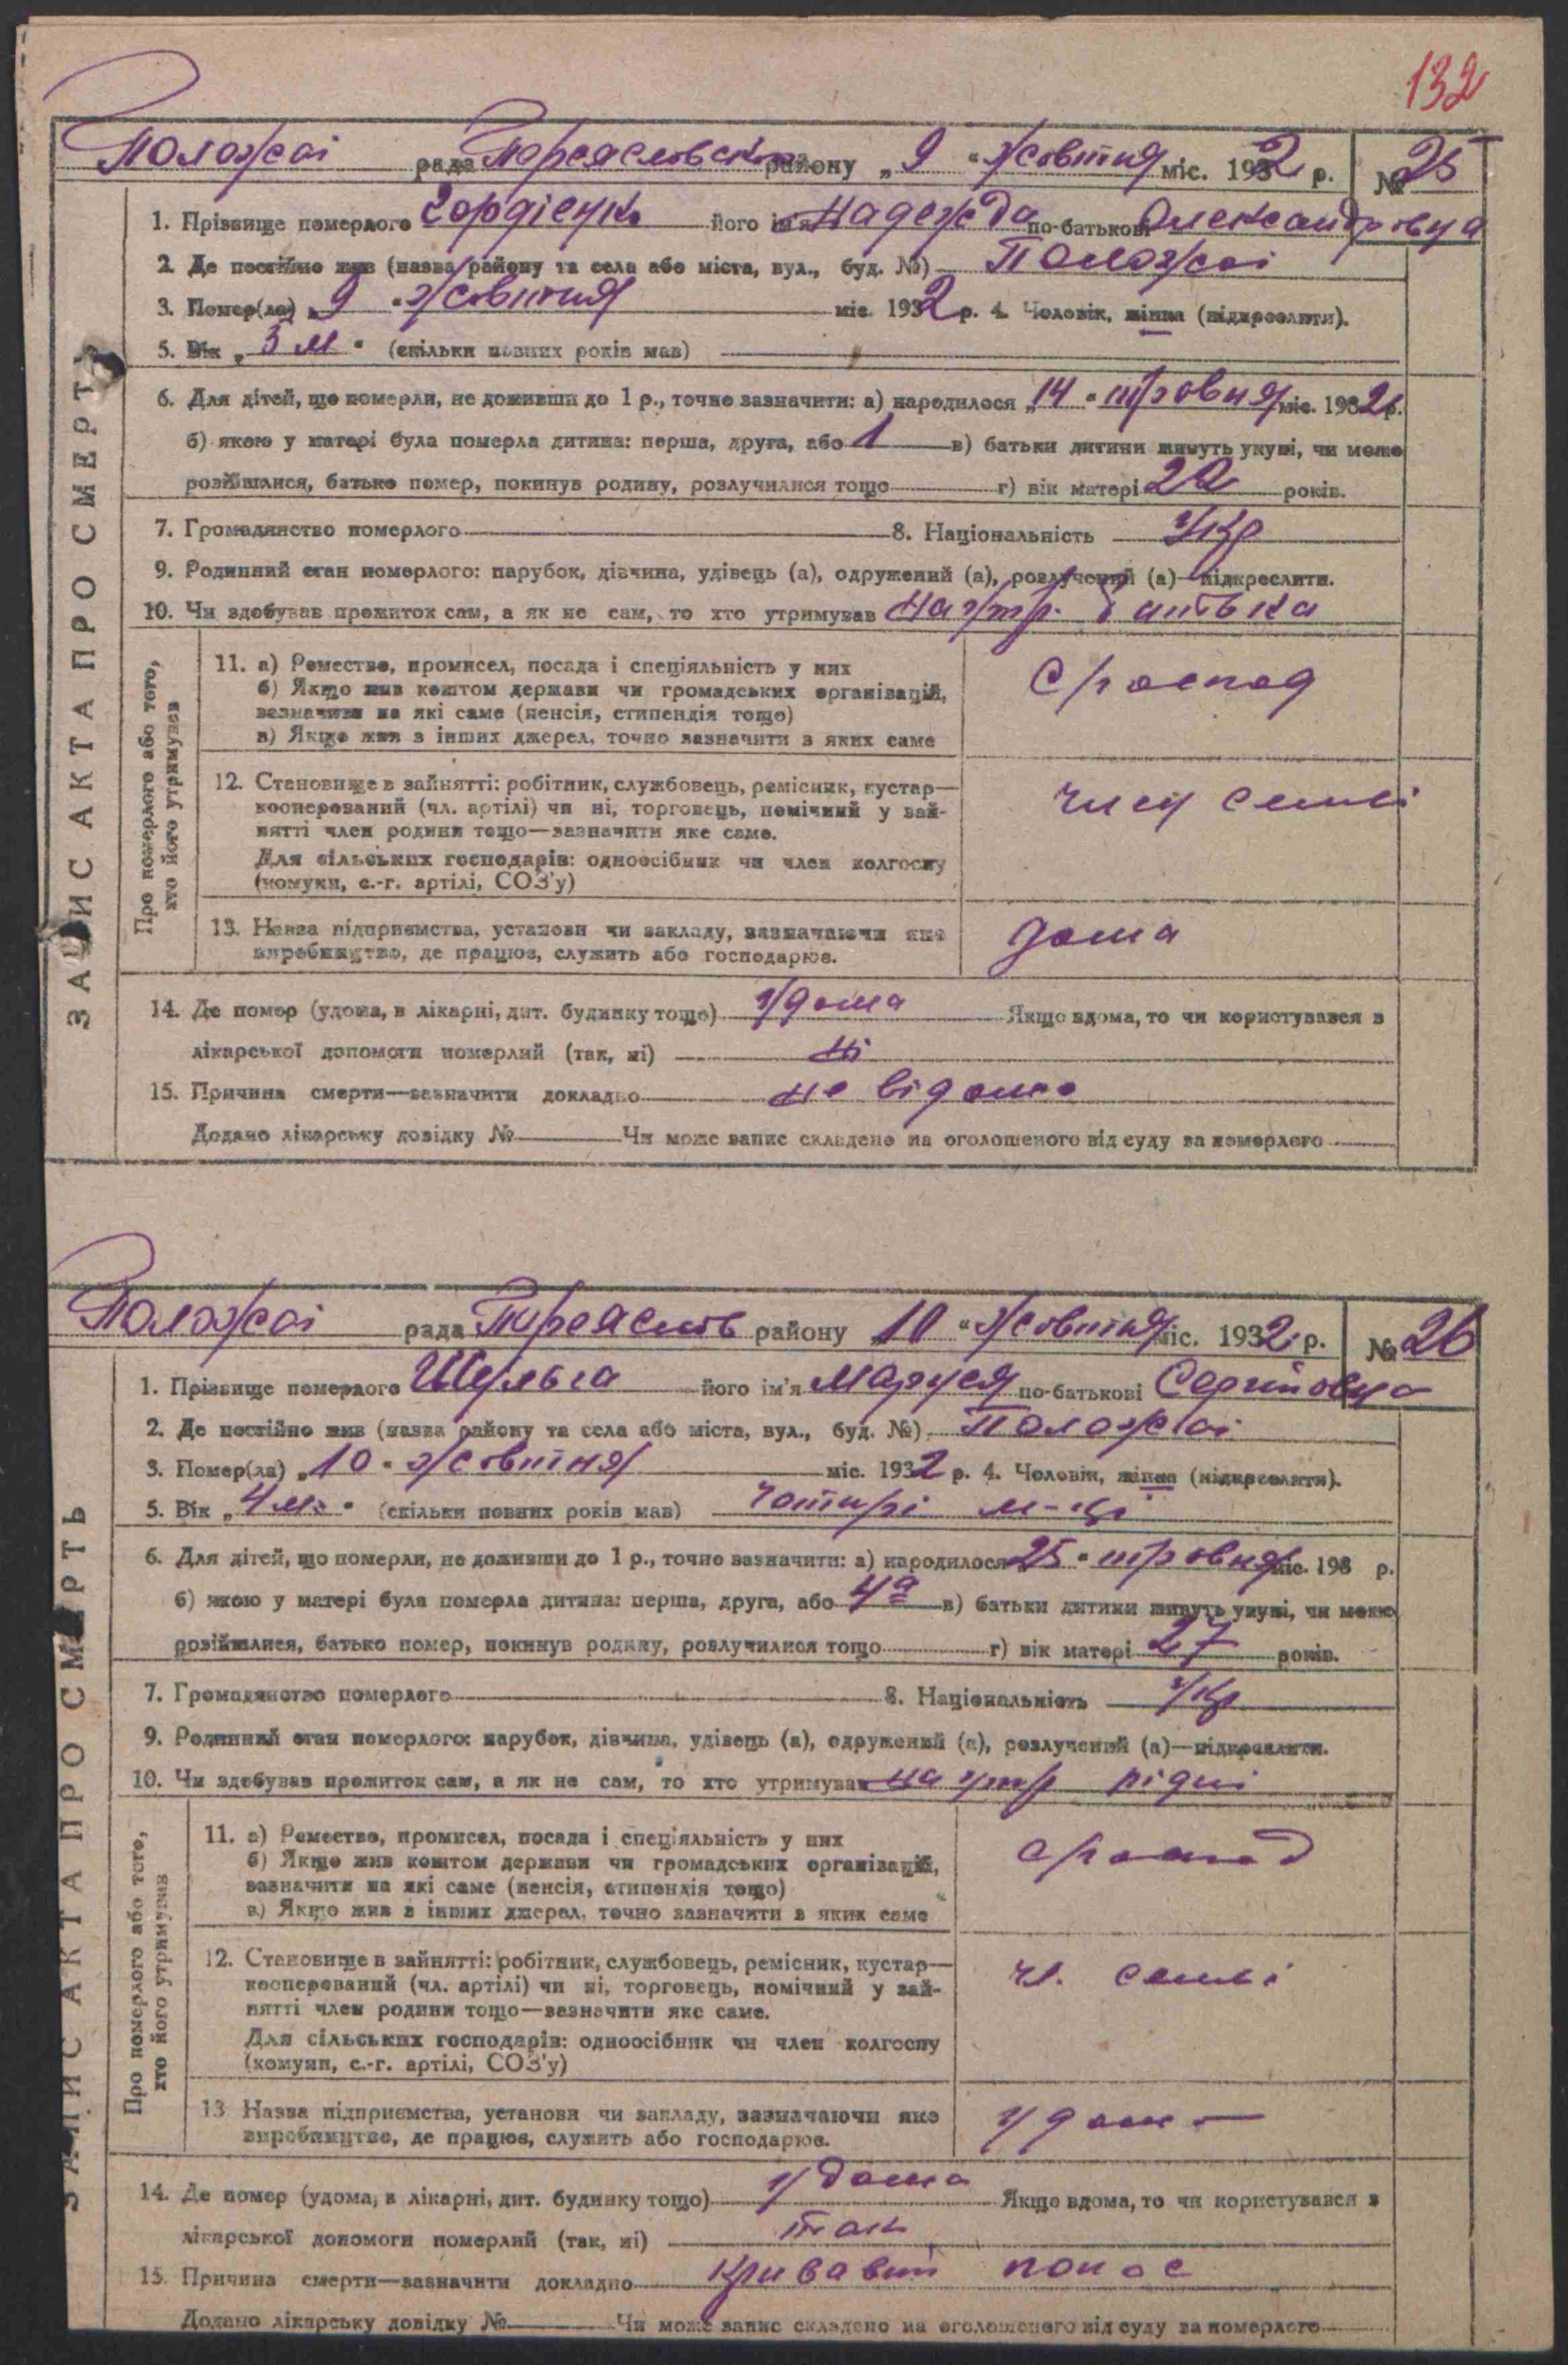 132
Положаї рада Переяславськ району „ 9 “ жовтня міс. 1932 р. № 25
1. Прізвище померлого Гордієнко його ім'я Надежда по-батькові Олександровна
2. Де постійно жив (назва району та села або міста, вул., буд. №) Положаї
3. Помер(ла) „ 9 “ жовтня міс. 1932 р. 4. Чоловік, жінка (підкреслити).
5. Вік „ 5 м “ (скільки повних років мав)
6. Для дітей, що померли, не доживши до 1 р., точно зазначити: а) народилося „ 14 “ травня міс. 1932 р.
б) якою у матері була померла дитина: перша, друга, або 1 в) батьки дитини живуть укупі, чи може
розійшлися, батько помер, покинув родину, розлучилися тощо г) вік матері 22 років.
7. Громадянство померлого 8. Національність Укр
9. Родинний стан померлого: парубок, дівчина, удівець (а), одружений (а), розлучений (а)—підкреслити.
10. Чи здобував прожиток сам, а як не сам, то хто утримував на утр. батька
ЗАПИС АКТА ПРО СМЕРТЬ
Про померлого або того, хто його утримував
11. а) Ремество, промисел, посада і спеціяльність у них
б) Якщо жив коштом держави чи громадських організацій,
зазначити на які саме (пенсія, стипендія тощо)
в) Якщо жив з інших джерел, точно зазначити з яких саме
с/господ
12. Становище в зайнятті: робітник, службовець, ремісник, кустар—
кооперований (чл. артілі) чи ні, торговець, помічний у зай-
нятті член родини тощо—зазначити яке саме.
Для сільських господарів: одноосібник чи член колгоспу
(комуни, с.-г. артілі, СОЗ'у)
член семьї
13. Назва підприємства, установи чи закладу, зазначаючи яке
виробництво, де працює, служить або господарює.
дома
14. Де помер (удома, в лікарні, дит. будинку тощо) удома Якщо вдома, то чи користувався з
лікарської допомоги померлий (так, ні) ні
15. Причина смерти—зазначити докладно не відомо
Додано лікарську довідку № Чи може запис складено на оголошеного від суду за померлого
Положаї рада Переяслів району „ 10 “ жовтня міс. 1932 р. № 26
1. Прізвище померлого Шульга його ім'я Маруся по-батькові Сергійовна
2. Де постійно жив (назва району та села або міста, вул., буд. №) Положаї
3. Помер(ла) „ 10 “ жовтня міс. 1932 р. 4. Чоловік, жінка (підкреслити).
5. Вік „ 4 м. “ (скільки повних років мав) чотирі м-ці
6. Для дітей, що померли, не доживши до 1 р., точно зазначити: а) народилося „ 25 “ травня міс. 193 р.
б) якою у матері була померла дитина: перша, друга, або 4а в) батьки дитини живуть укупі, чи може
розійшлися, батько помер, покинув родину, розлучилися тощо г) вік матері 27 років.
7. Громадянство померлого 8. Національність Укр
9. Родинний стан померлого: парубок, дівчина, удівець (а), одружений (а), розлучений (а)—підкреслити.
10. Чи здобував прожиток сам, а як не сам, то хто утримував на утр рідні
ЗАПИС АКТА ПРО СМЕРТЬ
Про померлого або того, хто його утримував
11. а) Ремество, промисел, посада і спеціяльність у них
б) Якщо жив коштом держави чи громадських організацій,
зазначити на які саме (пенсія, стипендія тощо)
в) Якщо жив з інших джерел, точно зазначити з яких саме
с/господ
12. Становище в зайнятті: робітник, службовець, ремісник, кустар—
кооперований (чл. артілі) чи ні, торговець, помічний у зай-
нятті член родини тощо—зазначити яке саме.
Для сільських господарів: одноосібник чи член колгоспу
(комуни, с.-г. артілі, СОЗ'у)
чл. семьї
13 Назва підприємства, установи чи закладу, зазначаючи яке
виробництво, де працює, служить або господарює.
удома
14. Де помер (удома, в лікарні, дит. будинку тощо) удома Якщо вдома, то чи користувався з
лікарської допомоги померлий (так, ні) так
15. Причина смерти—зазначити докладно кривавий понос
Додано лікарську довідку № Чи може запис складено на оголошеного від суду за померлого